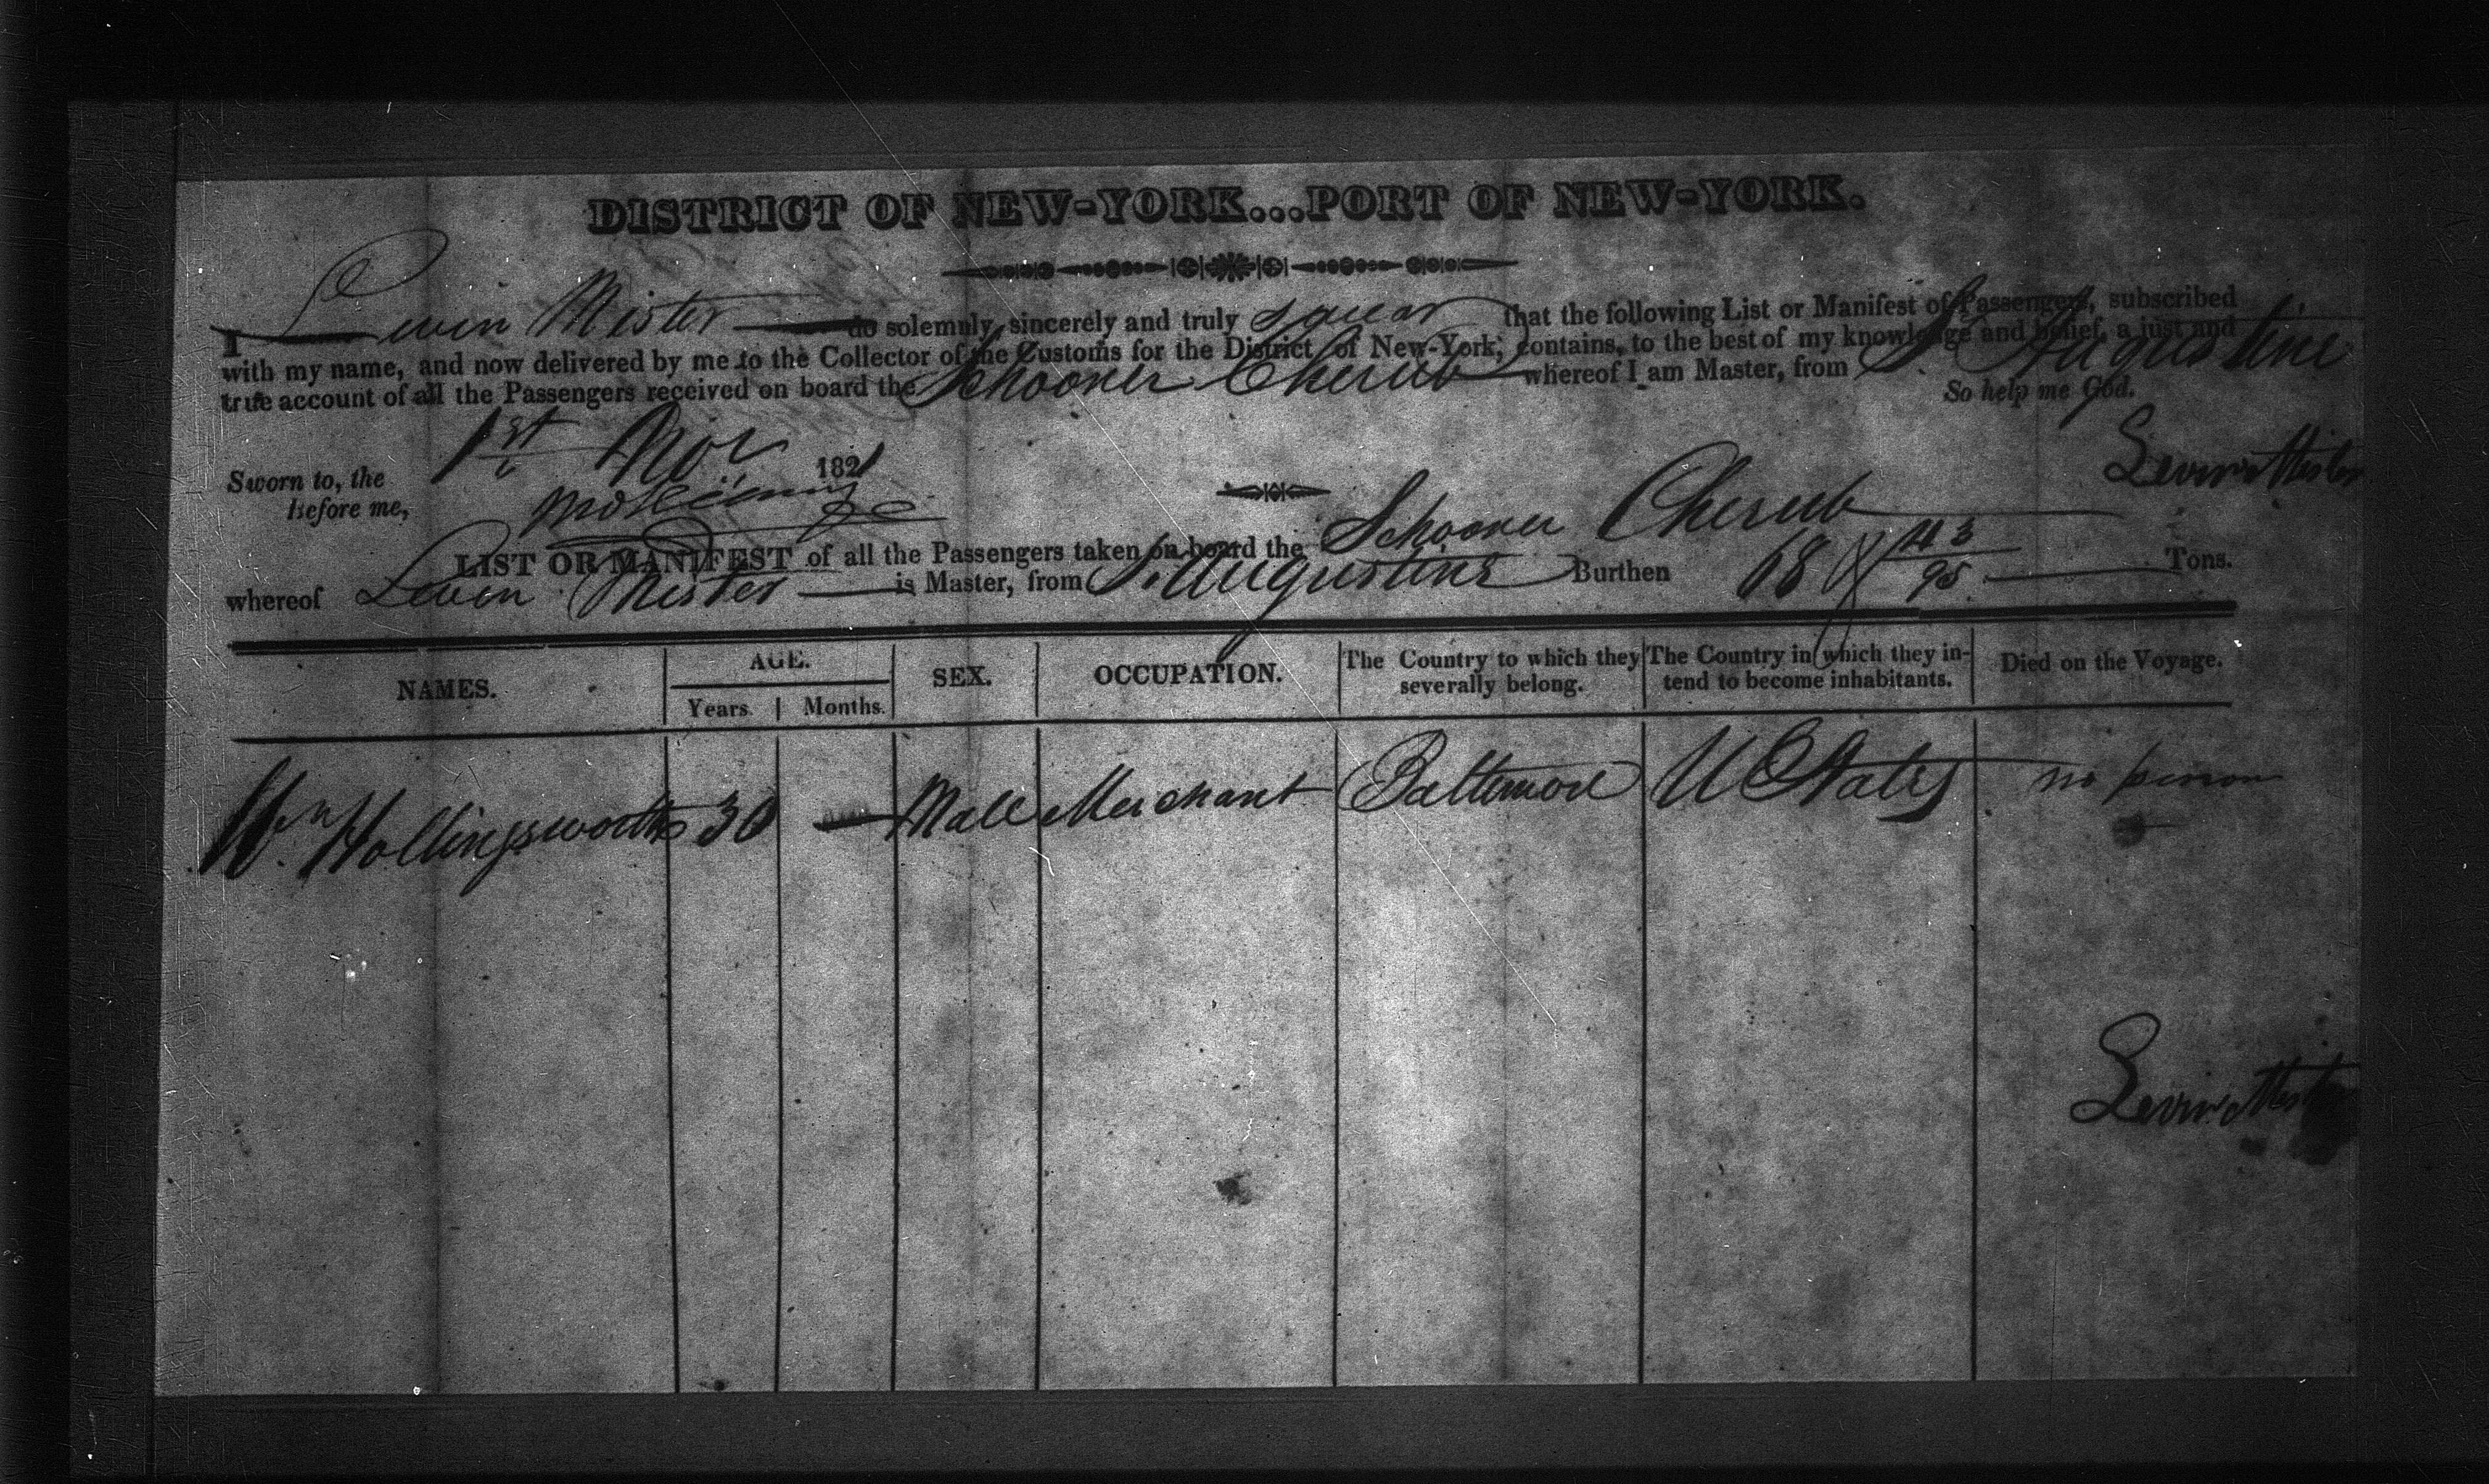 DISTRICT OF NEW-YORK...PORT OF NEW-YORK.
I Levin Mister do solemnly, sincerely and truly swear that the following List or Manifest of Passengers, subscribed
with my name, and now delivered by me to the Collector of the Customs for the District of New-York, contains, to the best of my knowledge and belief, a just and
true account of all the Passengers received on board the Schooner Cherub whereof I am Master, from St. Augustine
So help me God.
Sworn to, the 1st Nov 1821
Before me,
Levin Mister
LIST OR MANIFEST of all the Passengers taken on board the Schooner Cherub
whereof Levin Mister is Master, from St. Augustine Burthen 68 43/95 Tons.
NAMES. AGE. Years. Months. SEX. OCCUPATION. The Country to which they severally belong. The Country in which they intend to become inhabitants. Died on the Voyage.
Wm Hollingsworth 30 Male Merchant Baltimore U States no person
Levin Mister